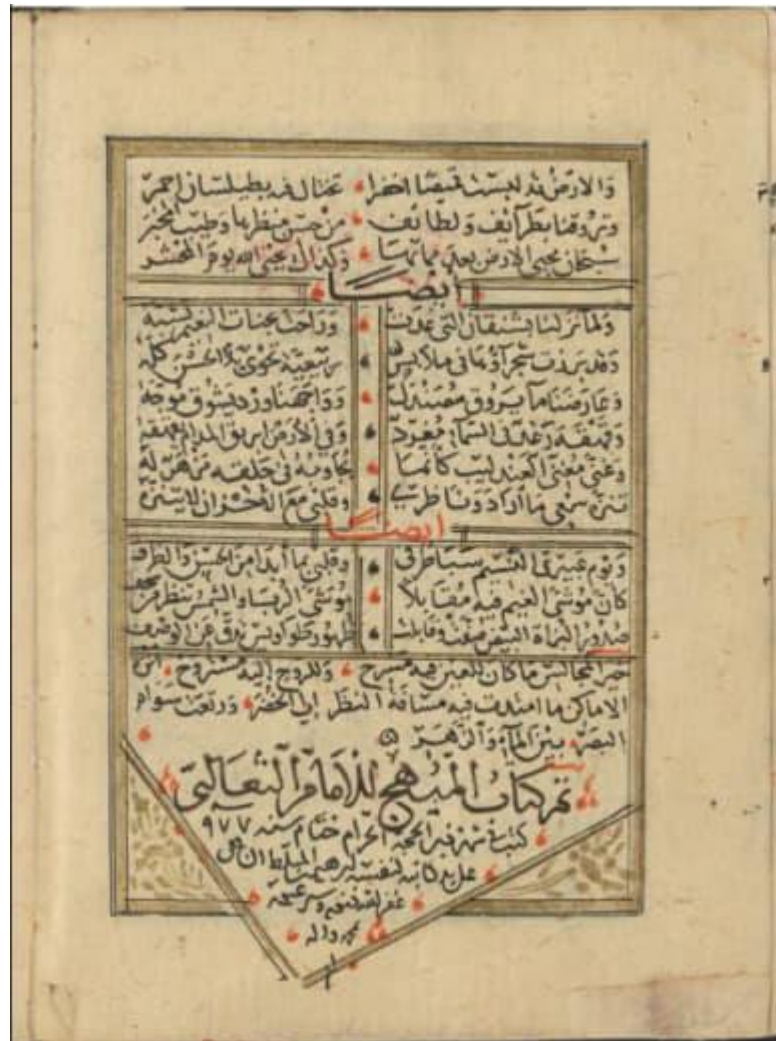 والارض قد لبست قميصا اخضرا تختال فيه بطيلسان احمر
وتروقنا بطرآئف ولطائف من حسن منظرها وطيب المخبر
سبحان محيي الارض بعد مماتها وكذاك يحيي الله يوم المحشر
ايضا
ولما نزلنا بشنقان التي غدت وراحت بجنات النعيم
وقد برزت شجرآؤها في ملابس ربيعية تحوي الحسن كله
وعارضنا مآ يروق مصندل وواجهنا ورد يشوق موجه
وقهقه رعد في السمآء مغرد وفي الارض ابريق المدام
وغنى مغني العندليب كانما يجاوبه في حلقه
تنزه سمعي ما اراد وناظري وقلبي مع الاخوان
ايضا
ويوم عبيري النسيم سبا طرفي وقلبي بما أبدا من الحسن والظرف
كان موشى الغيم فيه مقابلا موشى الربا والشمس تنظر
صدور البزاة البيض صفت وقابلت ظهور طواويس تدق عن الوصف
خير المجالس ما كان للعين فيه مسرح وللروح إليه مشروح
الاماكن ما امتدت فيه مسافة النظر إلى الخضر ورتعت سوام
البصر بين المآء والزهر
تم كتاب المبهج للامام الثعالبي
كتب في شهر ذي الحجة الحرام ختام سنه ٩٧٧
على يد كاتبه لنفسه ابرهيم
غفر الله ذنوبه وستر عيوبه
محمد واله